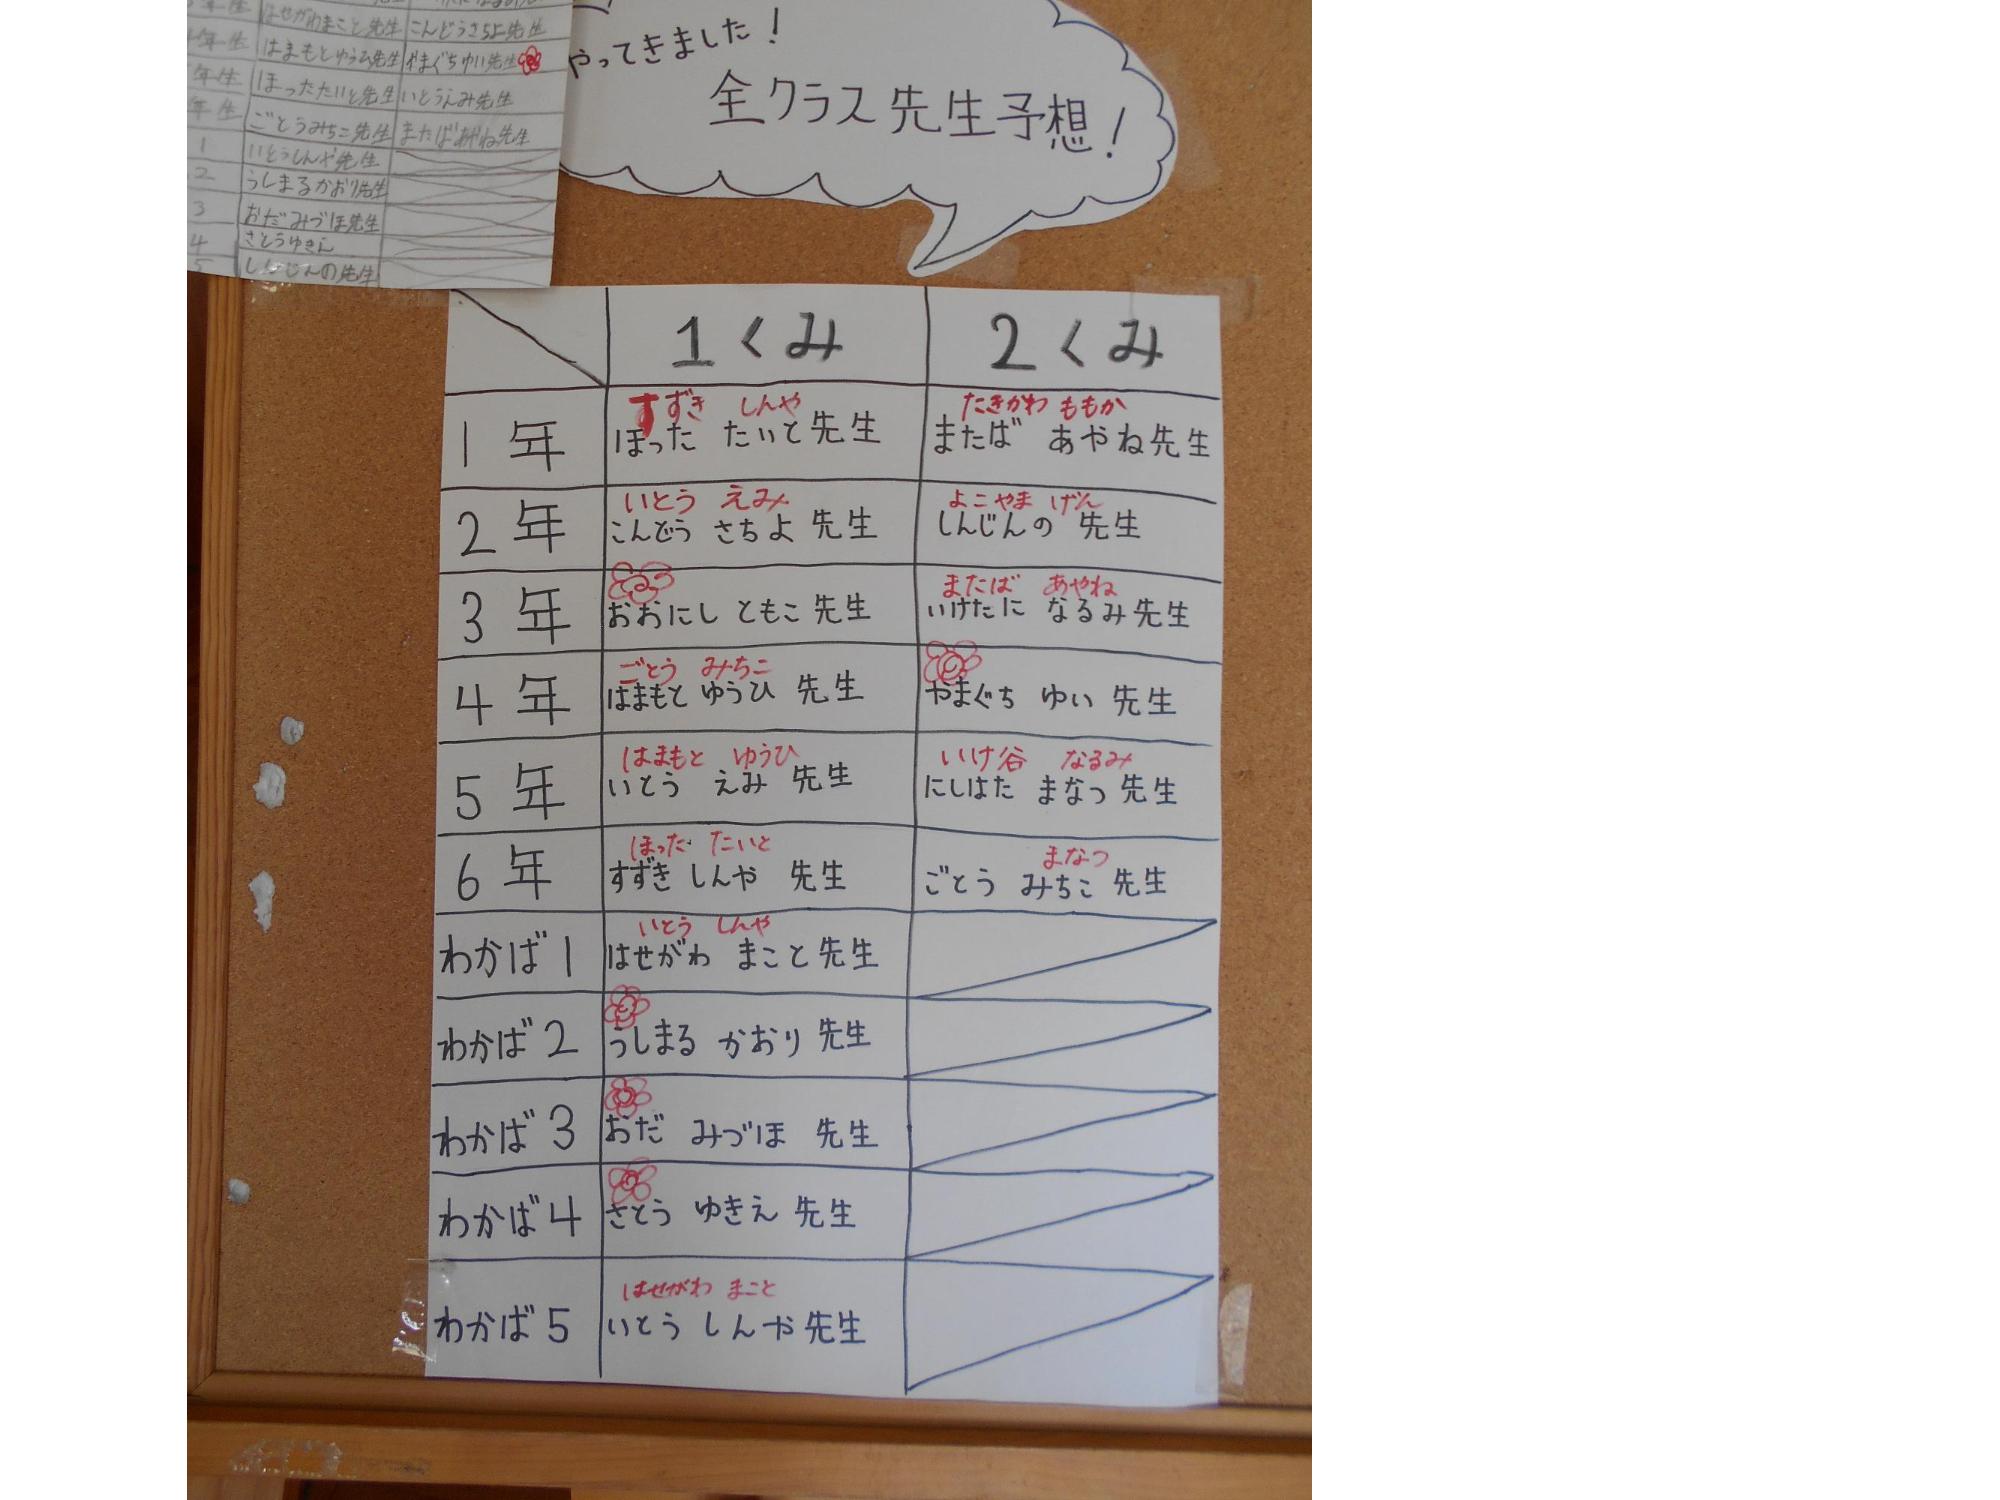 はせがわまこと先生 こんどうさちよ先生
年生 はまもとゆうひ先生 やまぐちゆい先生
年生 ほったたいと先生 いとうえみ先生
年生 ごとうみちこ先生 またばあやね先生
1 いとうしんや先生
2 うしまるかおり先生
3 おだみづほ先生
4 さとうゆきえ
5 しんじんの先生
やってきました!
全クラス先生予想!
1くみ 2くみ
すずき しんや たきがわ ももか
1年 ほった たいと先生 またば あやね先生
いとう えみ よこやま げん
2年 こんどう さちよ 先生 しんじんの 先生
またば あやね
3年 おおにし ともこ 先生 いけたに なるみ先生
ごとう みちこ
4年 はまもと ゆうひ 先生 やまぐち ゆい 先生
はまもと ゆうひ いけ谷 なるみ
5年 いとう えみ 先生 にしはた まなつ 先生
ほった たいと まなつ
6年 すずき しんや 先生 ごとう みちこ 先生
いとう しんや
わかば1 はせがわ まこと先生
わかば2 うしまる かおり 先生
わかば3 おだ みづほ 先生
わかば4 さとう ゆきえ 先生
はせがわ まこと
わかば5 いとう しんや先生